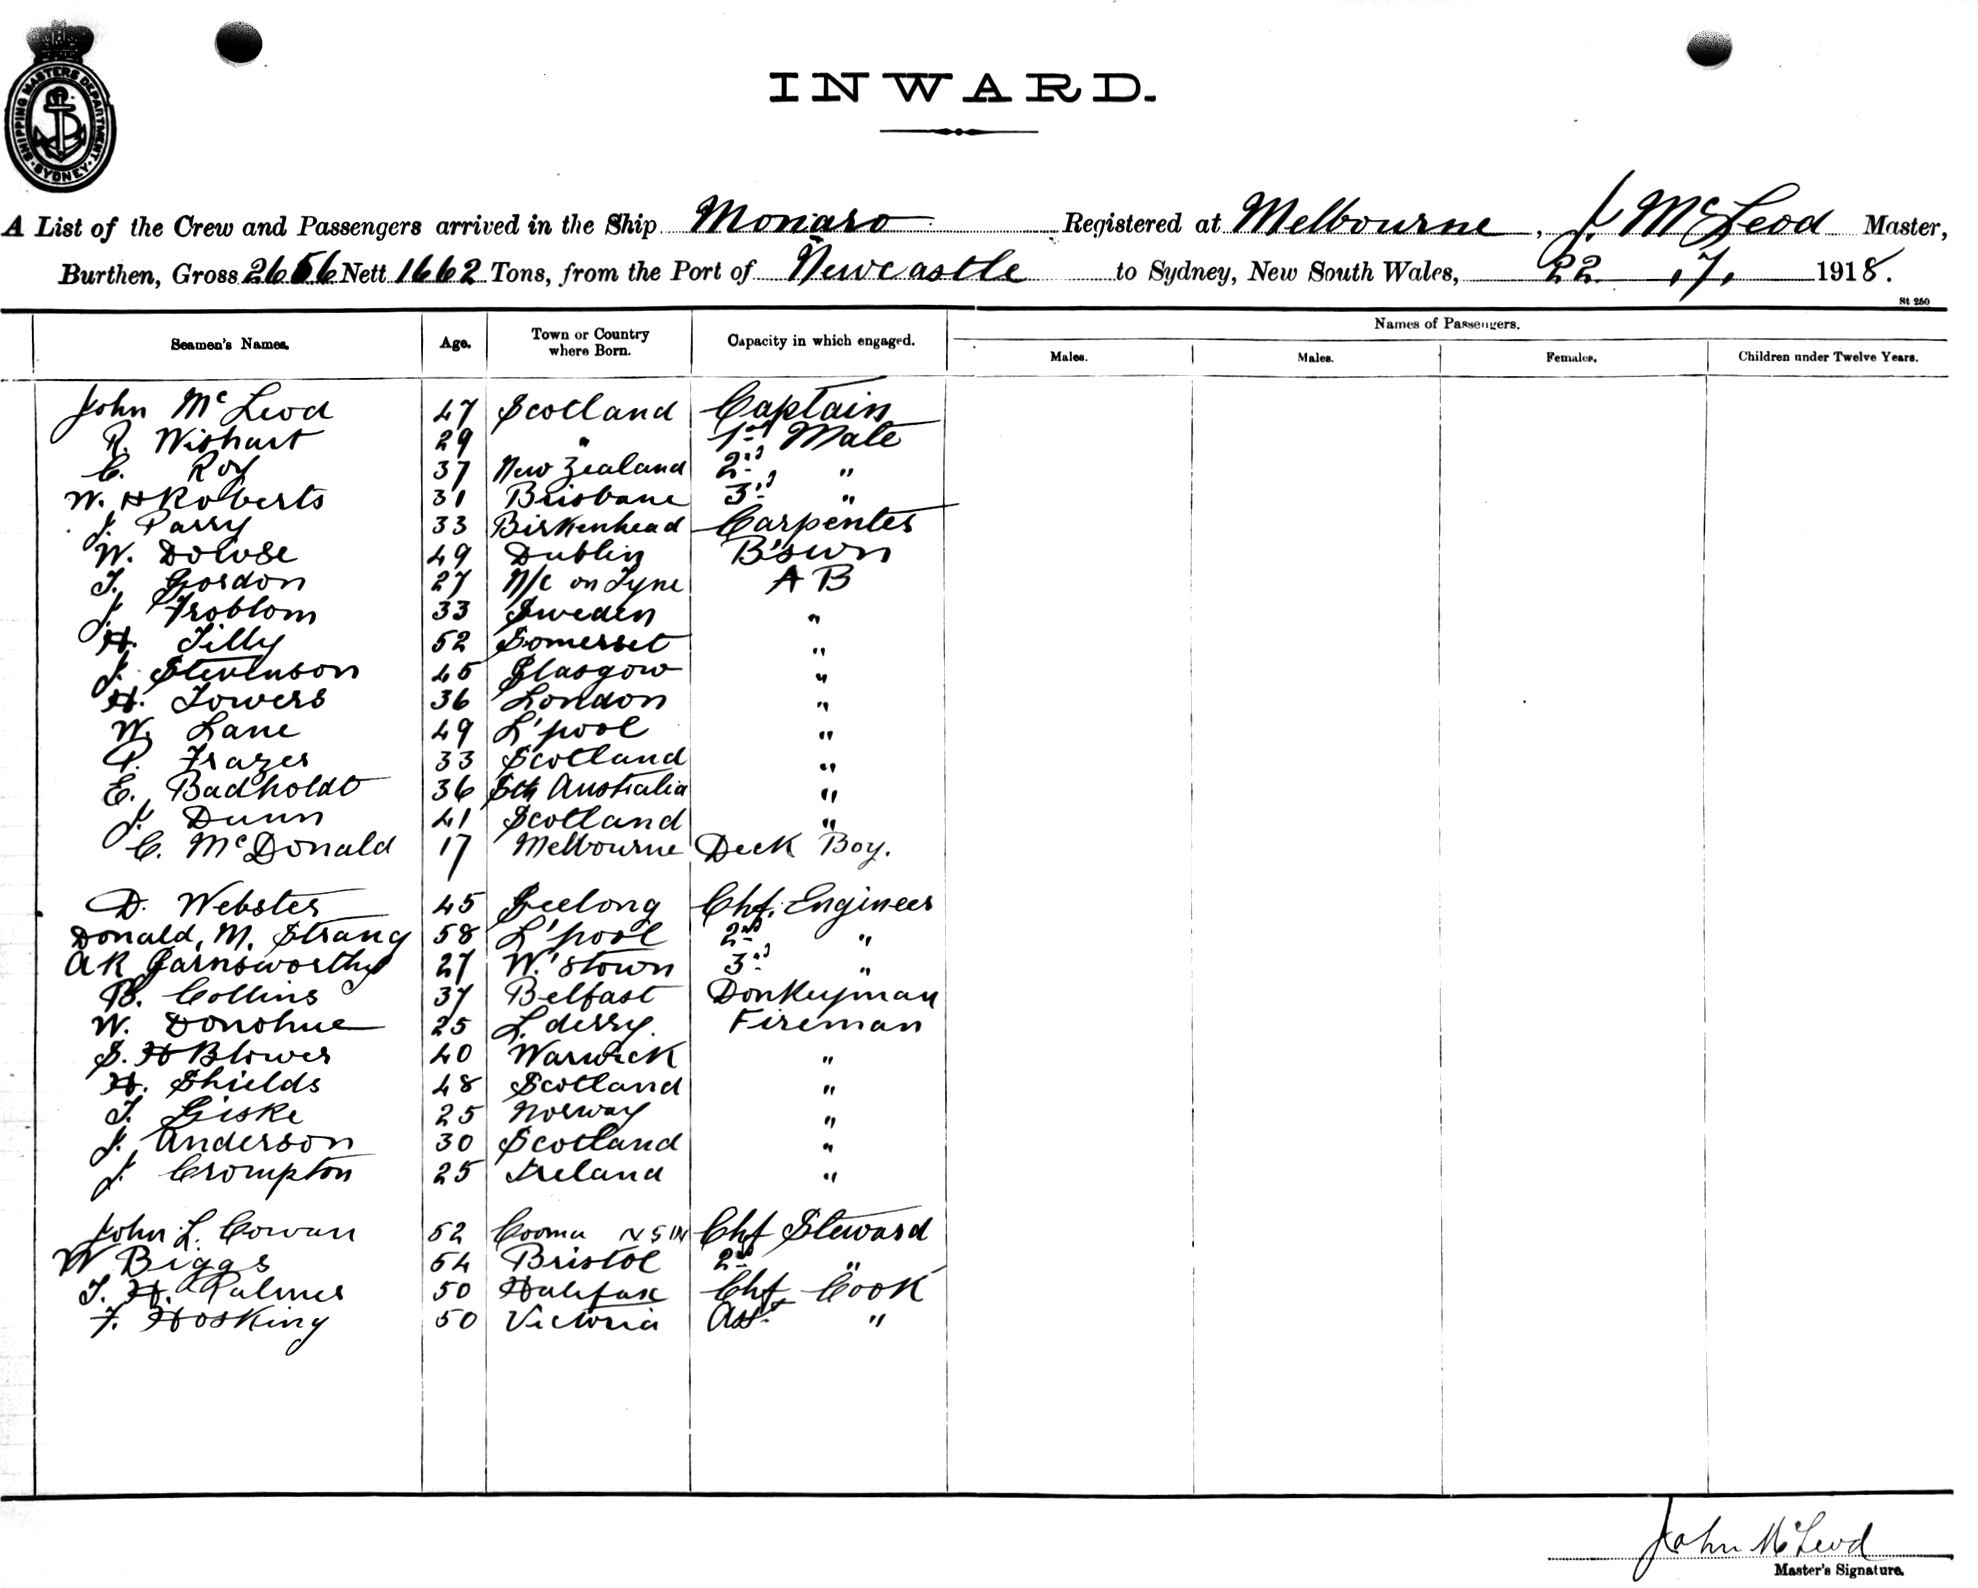 SHIPPING MASTERS DEPARTMENT · SYDNEY ·
INWARD.
A List of the Crew and Passengers arrived in the Ship Monaro Registered at Melbourne, J. McLeod Master,
Burthen, Gross 2656 Nett 1662 Tons, from the Port of Newcastle to Sydney, New South Wales, 22.7. 1918.
St 250
Seamen's Names. Age. Town or Country where Born. Capacity in which engaged. Names of Passengers.
Males. Males. Females. Children under Twelve Years.
John McLeod 47 Scotland Captain
R. Wishart 29 " 1st Mate
C. Roy 37 New Zealand 2nd "
W. H Roberts 31 Brisbane 3rd "
J. Parry 33 Birkenhead Carpenter
W. Dowse 49 Dublin B'swn
T. Gordon 27 N/C on Tyne A B
J. Froblom 33 Sweden "
H. Tilly 52 Somerset "
J. Stevenson 45 Glasgow "
H. Towers 36 London "
W. Lane 49 L'pool "
P. Frazer 33 Scotland "
E. Badholdt 36 Sth Australia "
J. Dunn 41 Scotland "
C. McDonald 17 Melbourne Deck Boy.
D. Webster 45 Geelong Chf. Engineer
Donald. M. Strang 58 L'pool 2nd "
A R Garnsworthy 27 W'stown 3rd "
B. Collins 37 Belfast Donkeyman
W. Donohue 25 L.derry. Fireman
S. H Blower 40 Warwick "
H. Shields 48 Scotland "
T. Giske 25 Norway "
J. Anderson 30 Scotland "
J. Crompton 25 Ireland "
John L. Cowan 52 Cooma NSW Chf Steward
W Biggs 54 Bristol 2nd "
T. H. Palmer 50 Halifax Chf Cook
F. Hosking 50 Victoria Asst. "
John McLeod
Master's Signature.